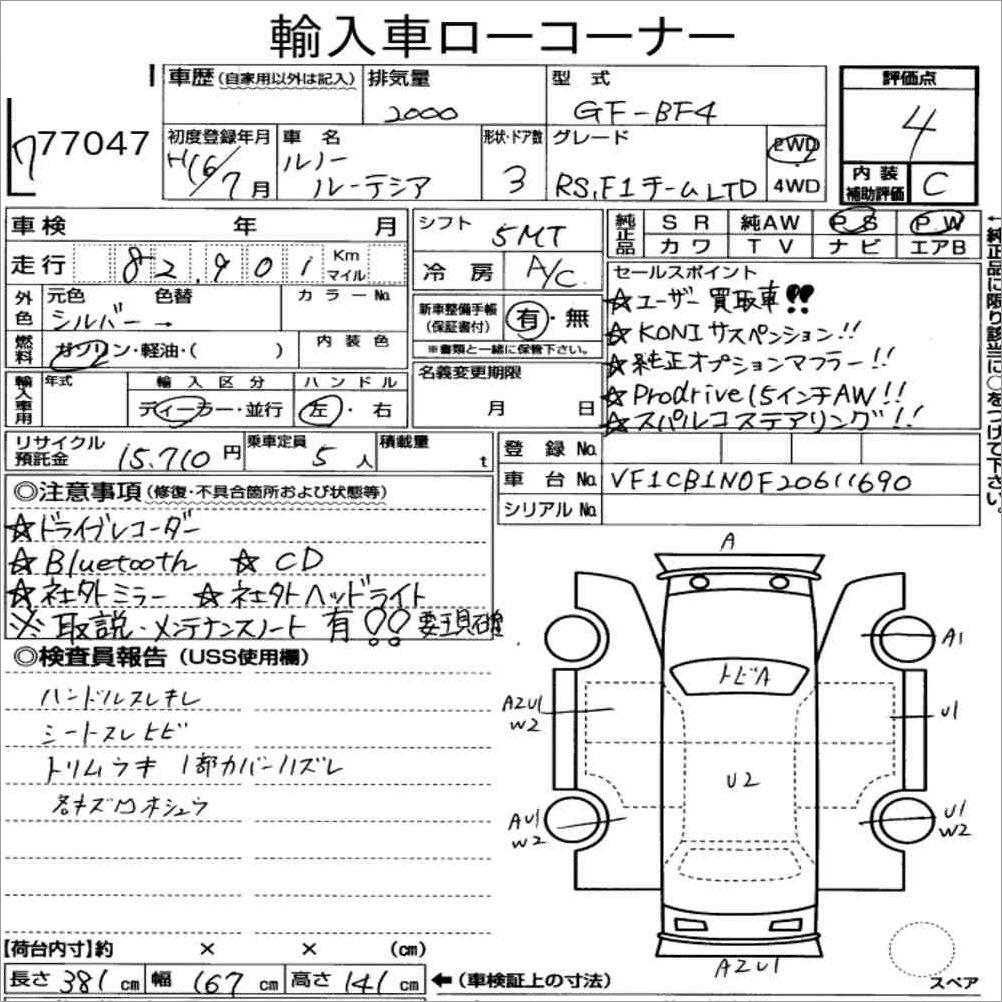 輸入車ローコーナー
77047
車歴(自家用以外は記入) 排気量 型式 評価点
2000 GF-BF4 4
初度登録年月 車名 形状・ドア数 グレード 2WD
H16/7月 ルノー ルーテシア 3 RS,F1チームLTD 4WD
内装補助評価 C
車検 年 月
走行 82,901 Km マイル
外色 元色 色替 カラーNo.
シルバー →
燃料 ガソリン・軽油・( ) 内装色
輸入車用 年式 輸入区分 ハンドル
ディーラー・並行 左・右
シフト 5MT
冷房 A/C
新車整備手帳(保証書付) 有・無
※書類と一緒に保管下さい。
名義変更期限
月 日
純正品 SR 純AW PS PW
カワ TV ナビ エアB
←純正品に限り該当に○をつけて下さい。
セールスポイント
☆ユーザー買取車!!
☆KONIサスペンション!!
☆純正オプションマフラー!!
☆Prodrive15インチAW!!
☆スパルコステアリング!!
リサイクル預託金 15,710円 乗車定員 5人 積載量 t
登録No.
車台No. VF1CB1N0F20611690
シリアルNo.
◎注意事項(修復・不具合箇所および状態等)
☆ドライブレコーダー
☆Bluetooth ☆CD
☆社外ミラー ☆社外ヘッドライト
※取説・メンテナンスノート有!! 要現確
◎検査員報告(USS使用欄)
ハンドルスレキレ
シートスレトビ
トリムウキ 1部カバーハズレ
各キズ凹
A
A1
トビA
AZU1
W2
U1
U2
AU1
W2
U1
W2
AZU1
スペア
【荷台内寸】約 × × (cm)
長さ381cm 幅167cm 高さ141cm ←(車検証上の寸法)